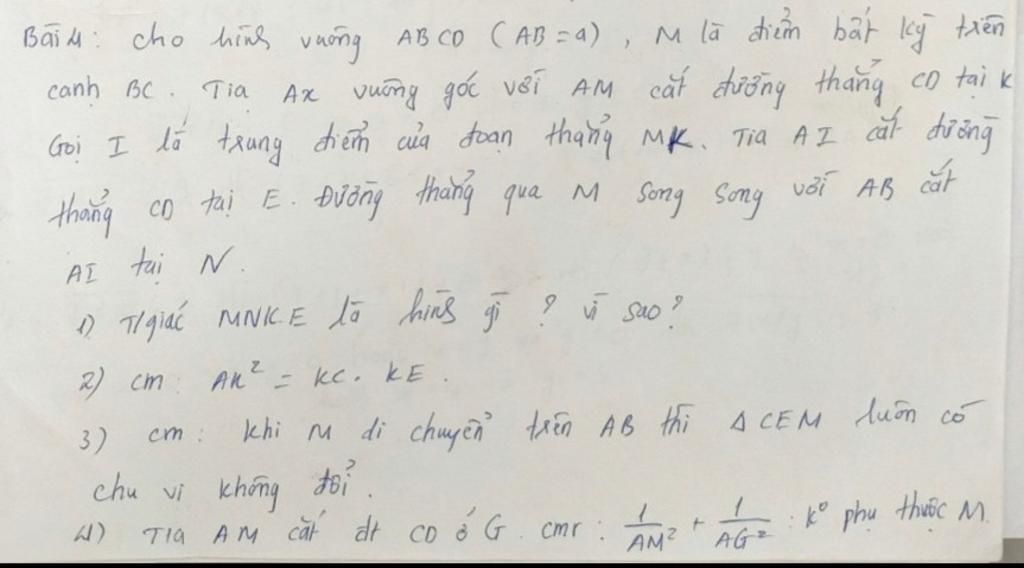 Bài 4: cho hình vuông ABCD (AB = a), M là điểm bất kỳ trên
cạnh BC. Tia Ax vuông góc với AM cắt đường thẳng CD tại K
Gọi I là trung điểm của đoạn thẳng MK. Tia AI cắt đường
thẳng CD tại E. Đường thẳng qua M song song với AB cắt
AI tại N.
1) T/giác MNKE là hình gì? vì sao?
2) cm: AK² = KC. KE.
3) cm: khi M di chuyển trên AB thì Δ CEM luôn có
chu vi không đổi.
4) Tia AM cắt đt CD ở G. cmr: 1/AM² + 1/AG² : k° phụ thuộc M.